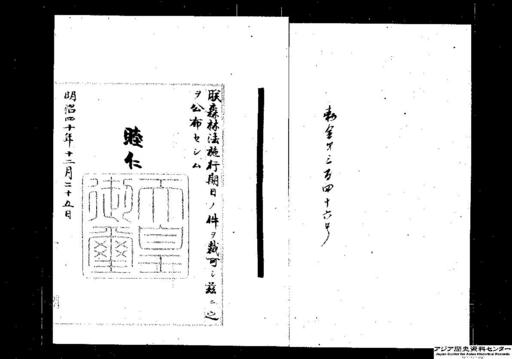 勅令第三百四十六号
朕森林法施行期日ノ件ヲ裁可シ茲ニ之
ヲ公布セシム
睦仁
天皇
御璽
明治四十年十二月二十五日
アジア歴史資料センター
Japan Center for Asian Historical Records